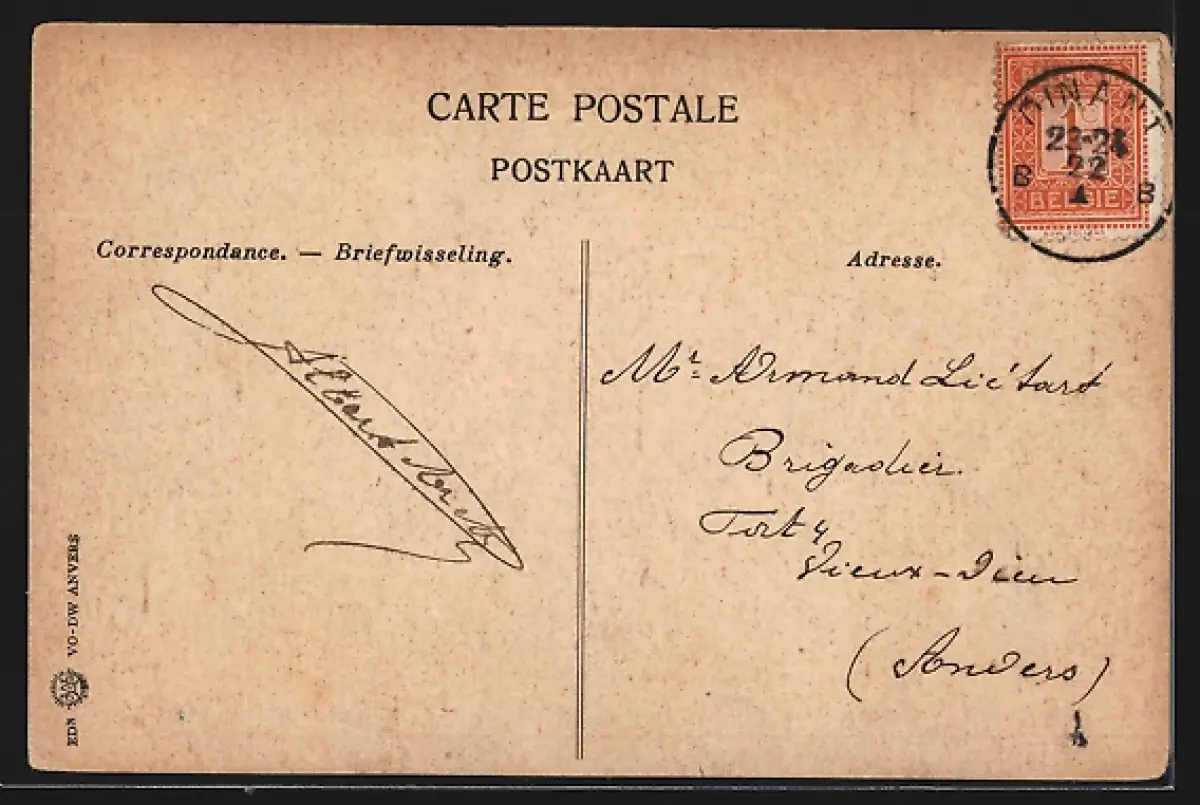 CARTE POSTALE
POSTKAART
DINANT
22-24
22
B B
1 C
BELGIE
Correspondance. — Briefwisseling.
Adresse.
Albert
Mr Armand Liétart
Brigadier.
Fort 4
Vieux-Dieu
(Anvers)
EDN VO-DW ANVERS